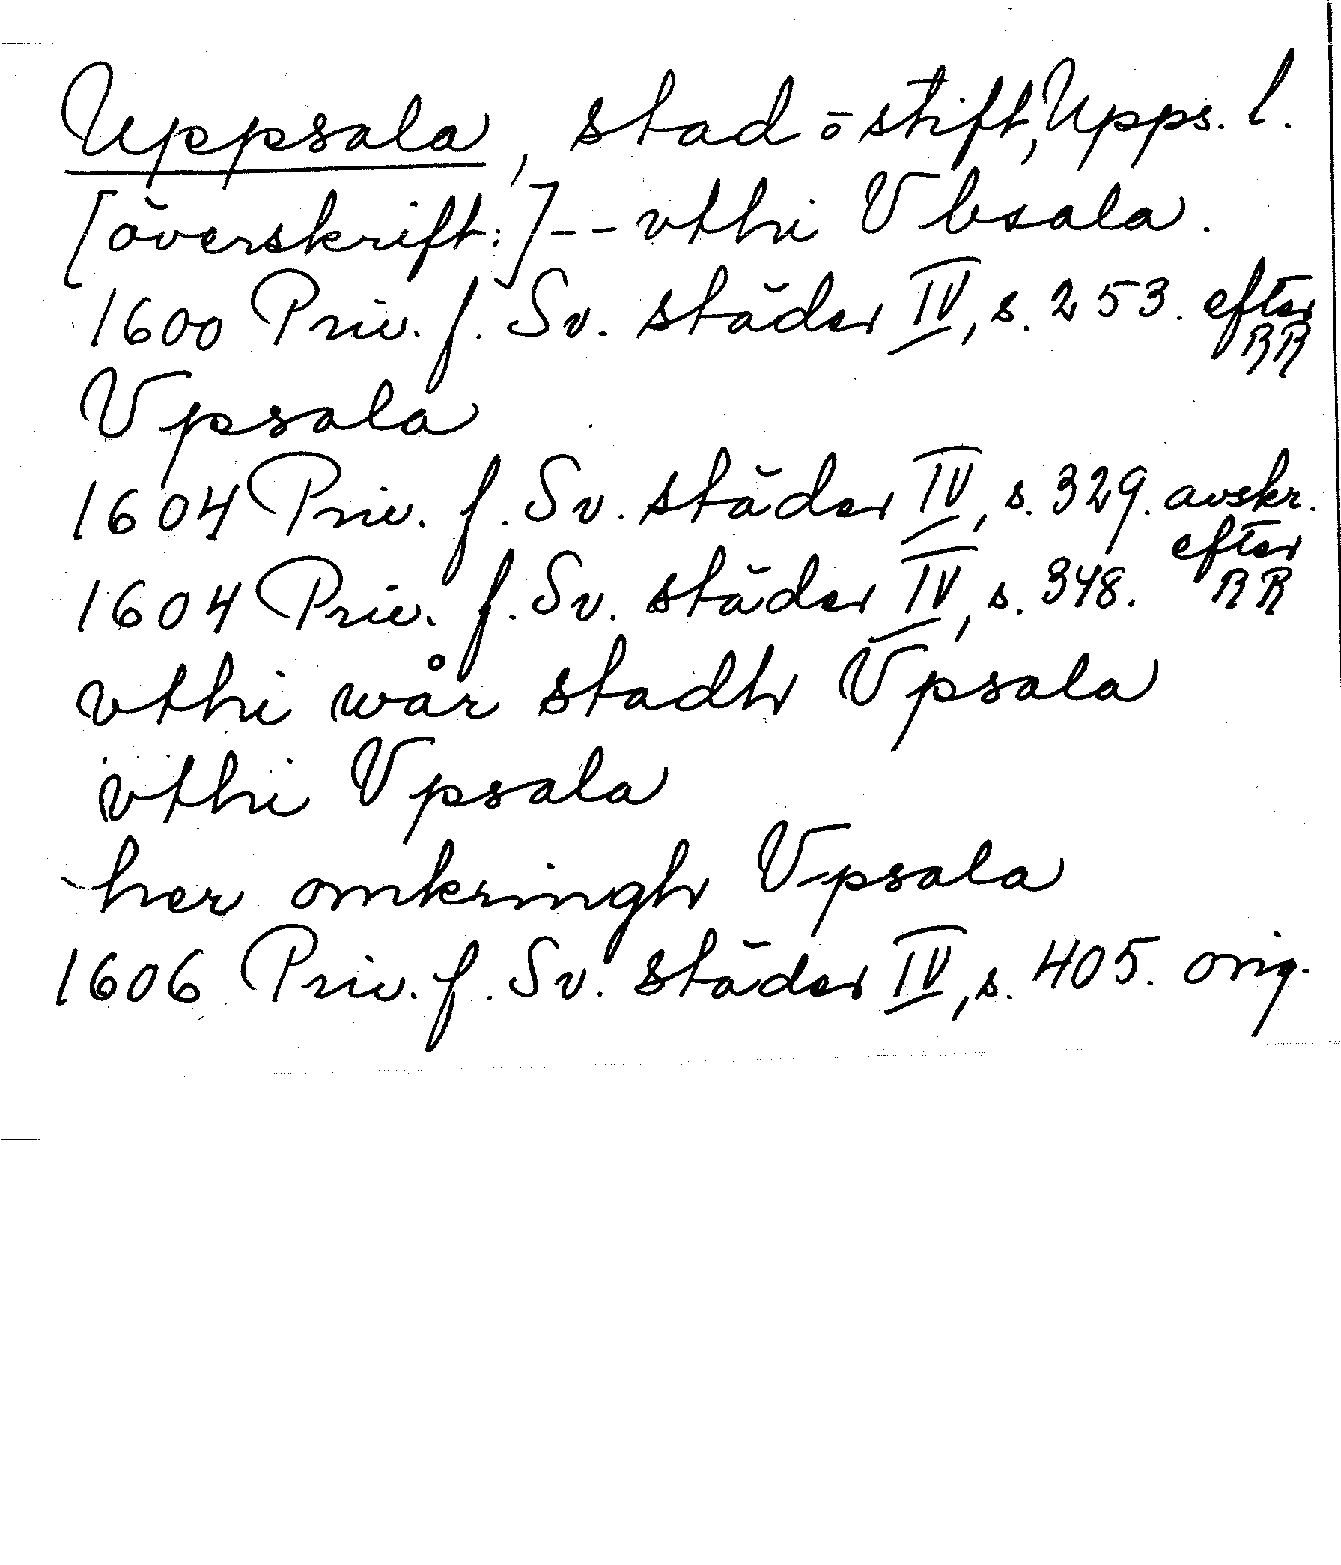 Uppsala, stad o stift, Upps. l.
[överskrift:] -- vthi Vbsala.
1600 Priv. f. Sv. städer IV, s. 253. efter RR
Vpsala
1604 Priv. f. Sv. städer IV, s. 329. avskr.
1604 Priv. f. Sv. städer IV, s. 348. efter RR
vthi wår stadh Vpsala
vthi Vpsala
her omkringh Vpsala
1606 Priv. f. Sv. städer IV, s. 405. orig.